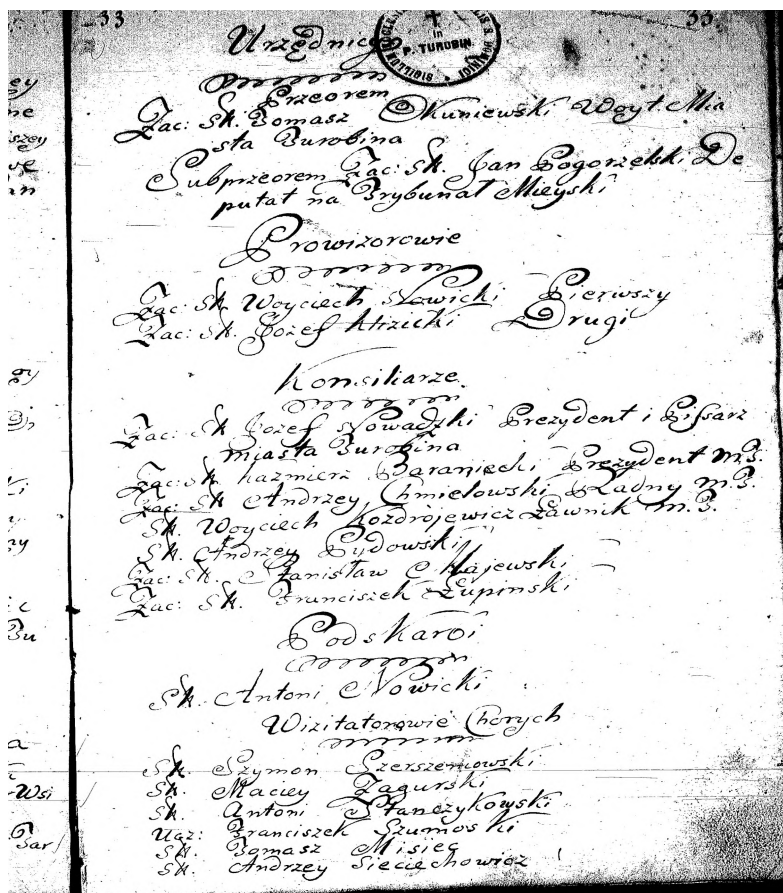 33
33.
Urzędnicy
in
P. TUROBIN
Przeorem
Zac: Sk. Tomasz Okuniewski Woyt Mia
sta Turobina
Subprzeorem Zac: Sk. Jan Pogorzelski De
putat na Trybunał Mieyski
Prowizorowie
Zac: Sk. Woyciech Nowicki Pierwszy
Zac: Sk. Jozef Drugi
Konsiliarze
Zac: Sk Jozef Nowadzki Prezydent i Pissarz
miasta Turobina
Zac: Sk Kazmierz Baraniecki Prezydent m.T.
Zac: Sk Andrzey Chmielowski Radny m.T.
Sk. Woyciech Kozdrojewicz Ławnik m.T.
Sk. Andrzey Pydowski
Zac: Sk. Stanisław Majewski
Zac: Sk. Franciszek Łupinski
Podskarbi
Sk. Antoni Nowicki
Wizitatorowie Chorych
Sk. Szymon Szerszeniowski
Sk. Maciey Zagurski
Sk. Antoni Stanczykowski
Ucz: Franciszek Szumoski
Sk. Tomasz Misiec
Sk. Andrzey Sieciechowicz